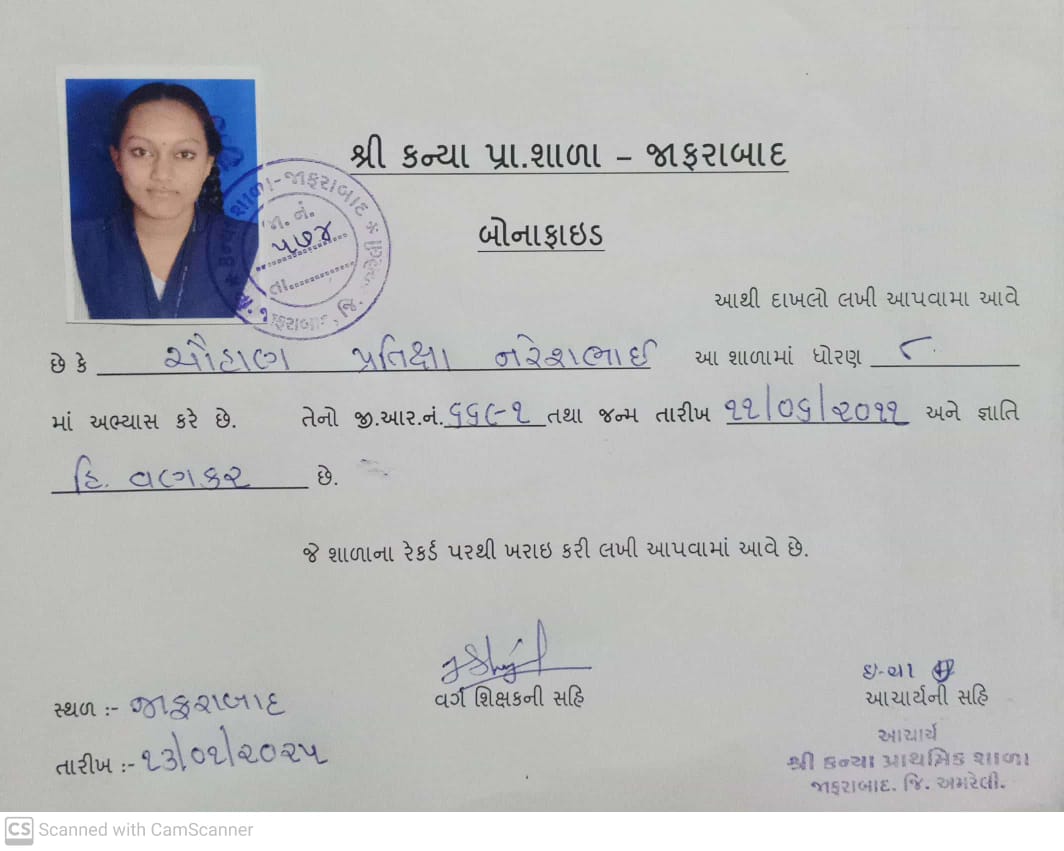 શ્રી કન્યા પ્રા.શાળા – જાફરાબાદ
જા. નં.
૫૭૪
તા.
બોનાફાઇડ
આથી દાખલો લખી આપવામા આવે
છે કે ચૌહાણ પ્રતિક્ષા નરેશભાઈ આ શાળામાં ધોરણ ૮
માં અભ્યાસ કરે છે. તેનો જી.આર.નં. ૬૬૯૧ તથા જન્મ તારીખ ૧૧/૦૬/૨૦૧૧ અને જ્ઞાતિ
હિ. વણકર છે.
જે શાળાના રેકર્ડ પરથી ખરાઇ કરી લખી આપવામાં આવે છે.
વર્ગ શિક્ષકની સહિ
ઇ.ચા
આચાર્યની સહિ
સ્થળ :- જાફરાબાદ
તારીખ :- ૧૩/૦૧/૨૦૨૫
આચાર્ય
શ્રી કન્યા પ્રાથમિક શાળા
જાફરાબાદ. જિ. અમરેલી.
CS Scanned with CamScanner